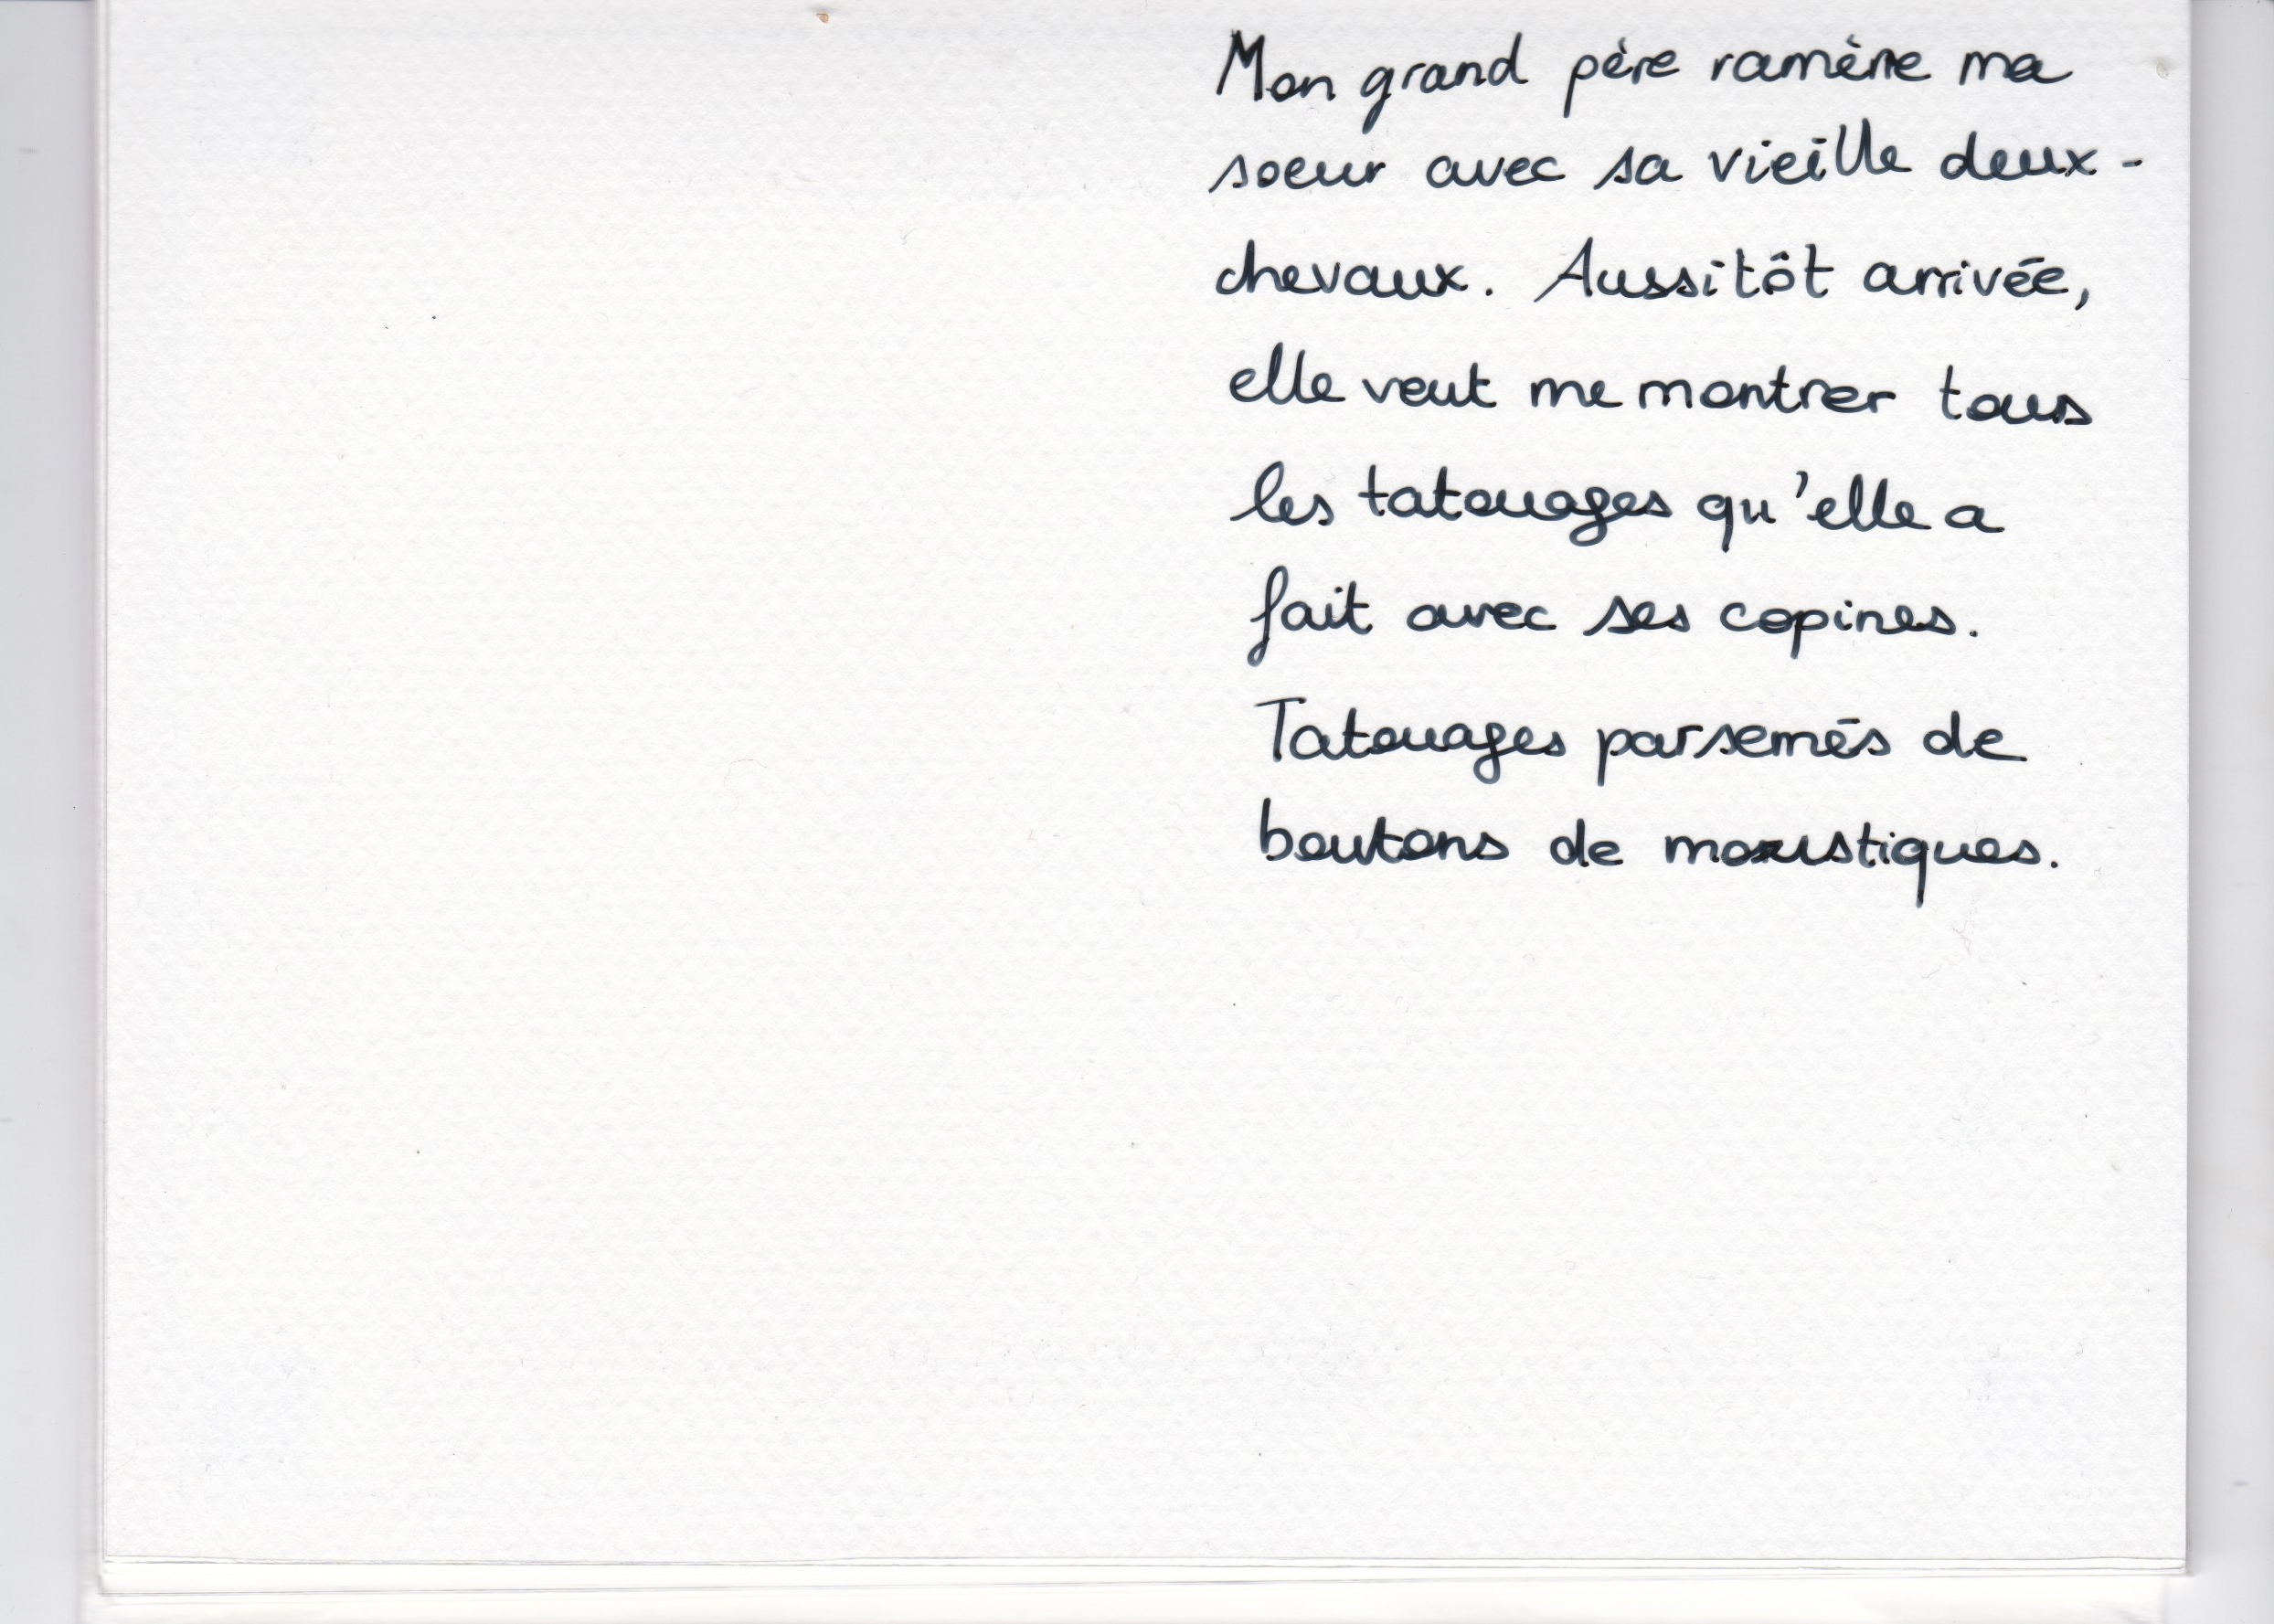 Mon grand père ramène ma
soeur avec sa vieille deux-
chevaux. Aussitôt arrivée,
elle veut me montrer tous
les tatouages qu'elle a
fait avec ses copines.
Tatouages parsemés de
boutons de moustiques.